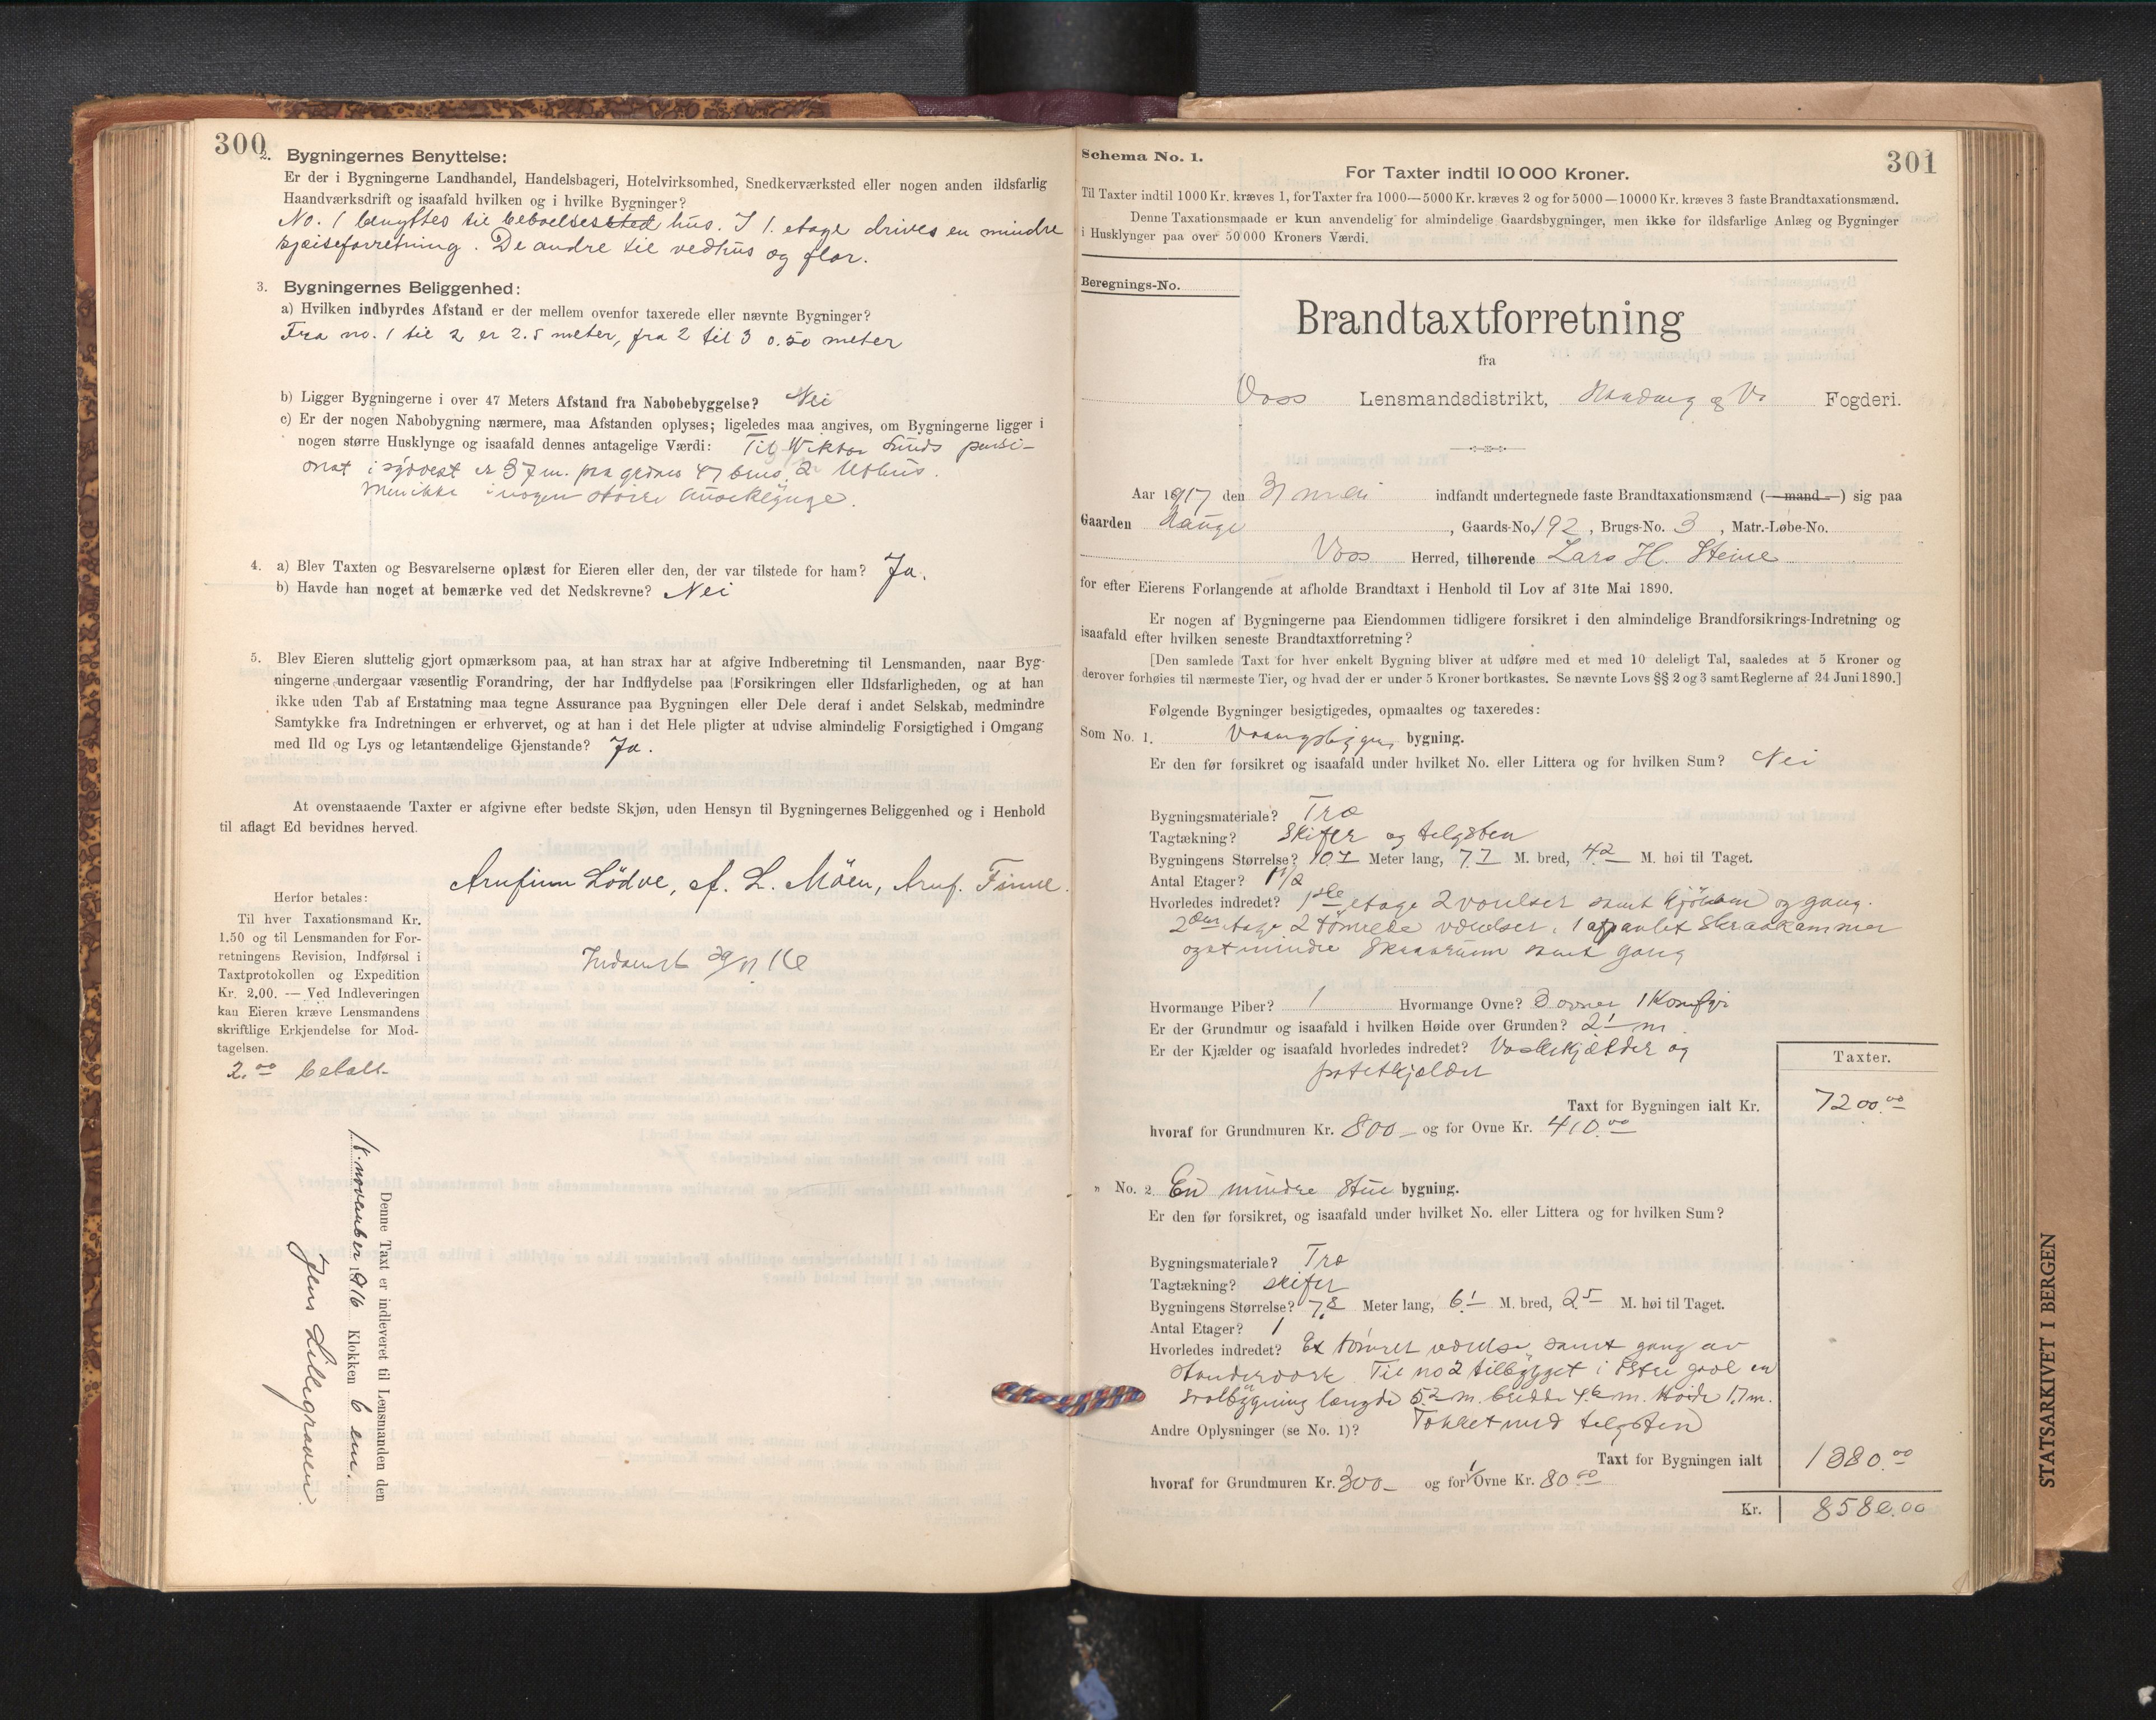 300
2. Bygningernes Benyttelse:
Er der i Bygningerne Landhandel, Handelsbageri, Hotelvirksomhed, Snedkerværksted eller nogen anden ildsfarlig
Haandværksdrift og isaafald hvilken og i hvilke Bygninger?
No. 1 benyttes til beboelsessted hus. I 1. etage drives en mindre
spiseforretning. De andre til vedhus og flor.
3. Bygningernes Beliggenhed:
a) Hvilken indbyrdes Afstand er der mellem ovenfor taxerede eller nævnte Bygninger?
Fra no. 1 til 2 er 2.5 meter, fra 2 til 3 0.50 meter
b) Ligger Bygningerne i over 47 Meters Afstand fra Nabobebyggelse? Nei
c) Er der nogen Nabobygning nærmere, maa Afstanden oplyses; ligeledes maa angives, om Bygningerne ligger i
nogen større Husklynge og isaafald dennes antagelige Værdi: Til Viktor Lunds pensi-
onat i sydvest er 37 m.
Men ikke i nogen større
4. a) Blev Taxten og Besvarelserne oplæst for Eieren eller den, der var tilstede for ham? Ja.
b) Havde han noget at bemærke ved det Nedskrevne? Nei
5. Blev Eieren sluttelig gjort opmærksom paa, at han strax har at afgive Indberetning til Lensmanden, naar Byg-
ningerne undergaar væsentlig Forandring, der har Indflydelse paa Forsikringen eller Ildsfarligheden, og at han
ikke uden Tab af Erstatning maa tegne Assurance paa Bygningen eller Dele deraf i andet Selskab, medmindre
Samtykke fra Indretningen er erhvervet, og at han i det Hele pligter at udvise almindelig Forsigtighed i Omgang
med Ild og Lys og letantændelige Gjenstande? Ja.
At ovenstaaende Taxter er afgivne efter bedste Skjøn, uden Hensyn til Bygningernes Beliggenhed og i Henhold
til aflagt Ed bevidnes herved.
Arnfinn Lödve, A. L. Möen, Arnf. Finne.
Herfor betales:
Til hver Taxationsmand Kr.
1.50 og til Lensmanden for For-
retningens Revision, Indførsel i
Taxtprotokollen og Expedition
Kr. 2.00. — Ved Indleveringen
kan Eieren kræve Lensmandens
skriftlige Erkjendelse for Mod-
tagelsen.
2.00 betalt
Indsendt 29/11 16
Denne Taxt er indleveret til Lensmanden den
november 1916 Klokken 6 em.
Jens Lillegraven.
Schema No. 1.
301
For Taxter indtil 10 000 Kroner.
Til Taxter indtil 1000 Kr. kræves 1, for Taxter fra 1000—5000 Kr. kræves 2 og for 5000—10000 Kr. kræves 3 faste Brandtaxationsmænd.
Denne Taxationsmaade er kun anvendelig for almindelige Gaardsbygninger, men ikke for ildsfarlige Anlæg og Bygninger
i Husklynger paa over 50 000 Kroners Værdi.
Beregnings-No.
Brandtaxtforretning
fra
Voss Lensmandsdistrikt, Hardang og Vo Fogderi.
Aar 1917 den 31 mai indfandt undertegnede faste Brandtaxationsmænd (—mand—) sig paa
Gaarden Hauge, Gaards-No. 192, Brugs-No. 3, Matr.-Løbe-No.
Voss Herred, tilhørende Lars H. Steine
for efter Eierens Forlangende at afholde Brandtaxt i Henhold til Lov af 31te Mai 1890.
Er nogen af Bygningerne paa Eiendommen tidligere forsikret i den almindelige Brandforsikrings-Indretning og
isaafald efter hvilken seneste Brandtaxtforretning?
[Den samlede Taxt for hver enkelt Bygning bliver at udføre med et med 10 deleligt Tal, saaledes at 5 Kroner og
derover forhøies til nærmeste Tier, og hvad der er under 5 Kroner bortkastes. Se nævnte Lovs §§ 2 og 3 samt Reglerne af 24 Juni 1890.]
Følgende Bygninger besigtigedes, opmaaltes og taxeredes:
Som No. 1. bygning.
Er den før forsikret og isaafald under hvilket No. eller Littera og for hvilken Sum? Nei
Bygningsmateriale? Træ
Tagtækning? Skifer og telgsten
Bygningens Størrelse? 10.7 Meter lang, 7.7 M. bred, 4.2 M. høi til Taget.
Antal Etager? 1 1/2
Hvorledes indredet? 1ste etage 2 værelser samt kjökken og gang.
2den etage 2 tömrede værelser, 1 afpanlet Skraakammer
og et mindre Skraarum samt gang
Hvormange Piber? 1 Hvormange Ovne? 3 ovner 1 Komfyr
Er der Grundmur og isaafald i hvilken Høide over Grunden? 2.1 m.
Er der Kjælder og isaafald hvorledes indredet? Vaskekjælder og
potetkjælder
Taxter.
Taxt for Bygningen ialt Kr. 7200.00
hvoraf for Grundmuren Kr. 800 — og for Ovne Kr. 410.00
" No. 2 En mindre Stue bygning.
Er den før forsikret, og isaafald under hvilket No. eller Littera og for hvilken Sum?
Bygningsmateriale? Træ
Tagtækning? skifer
Bygningens Størrelse? 7.8 Meter lang, 6.1 M. bred, 2.5 M. høi til Taget.
Antal Etager? 1
Hvorledes indredet? Et tömret værelse samt gang av
Standerværk. Til no 2 tilbygget i Östre gavl en
svalbygning længde 5.2 m. bredde 4.6 m. Høide 1.7 m.
Andre Oplysninger (se No. 1)? Tækket med telgsten
Taxt for Bygningen ialt 1380.00
hvoraf for Grundmuren Kr. 300 — og for 1 Ovne Kr. 80.00
Kr. 8580.00
STATSARKIVET I BERGEN